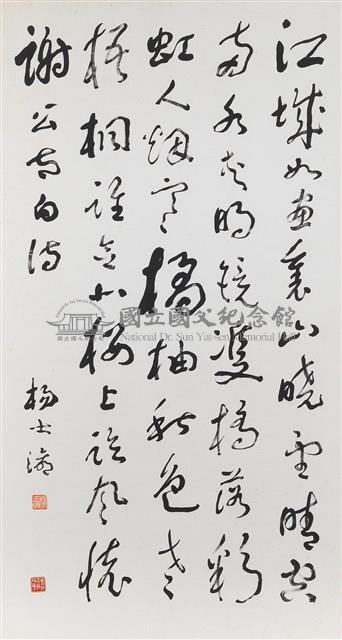 江城如畫裏山曉望晴空
兩水夾明鏡雙橋落彩
虹人煙寒橘柚秋色老
梧桐誰念北樓上臨風懷
謝公 白詩
楊士
國立國父紀念館
National Dr. Sun Yat-sen Memorial Hall